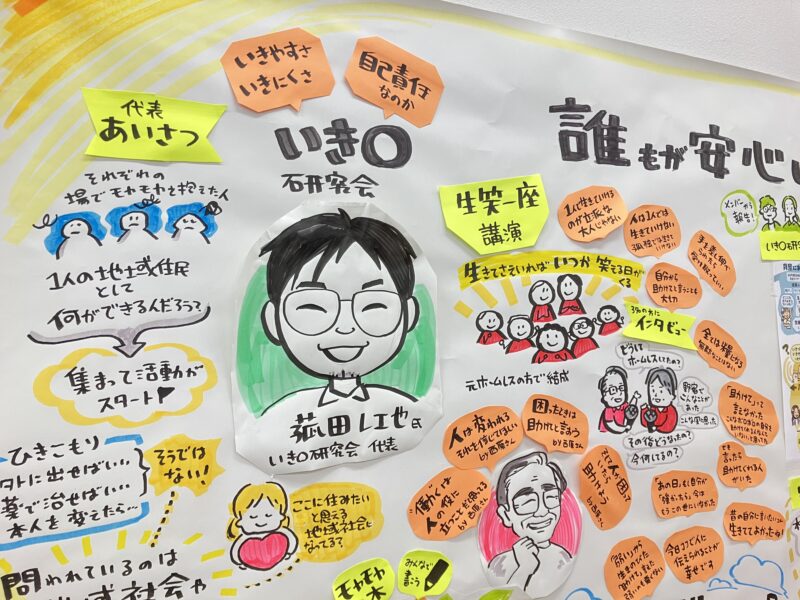 いきやすさ
いきにくさ
自己責任
なのか
代表
あいさつ
いき○
研究会
誰もが安心し
それぞれの
場でモヤモヤと抱えた人
1人の地域住民
として
何ができるんだろう?
集まって活動が
スタート
ひきこもり
外に出せばい‥
薬で治せばい‥
本人を変えたら‥
そうでは
ない!
問われているのは
地域社会や
荻田
氏
いき○研究会 代表
ここに住みたい
と思える
地域社会に
なってる?
モヤモヤ
木
みんなで
書こう
生笑一座
講演
生きてさえいれば いつか 笑える日が
くる
元ホームレスの方で結成
1人で生きていける
のが立派な
大人じゃない
人は1人では
生きていけない
自分から
助けてと言うことも
大切
3名の方に
インタビュー
どうして
ホームレスしたの?
野宿で
どんなことが
あった
その後どうなったの?
今何してるの?
人は変われる
それを信じてほしい
by西原さん
困ったときは
助けてと言おう
by西原さん
"働く"は
人の役に
立つことだと思ってる
by西原さん
「助けて」って
言えなかった
言ったら
助けてくれる人が
いた
今日ココで人に
伝えられることが
幸せです
生きててよかったね!
メンバーから
報告!
いき○研